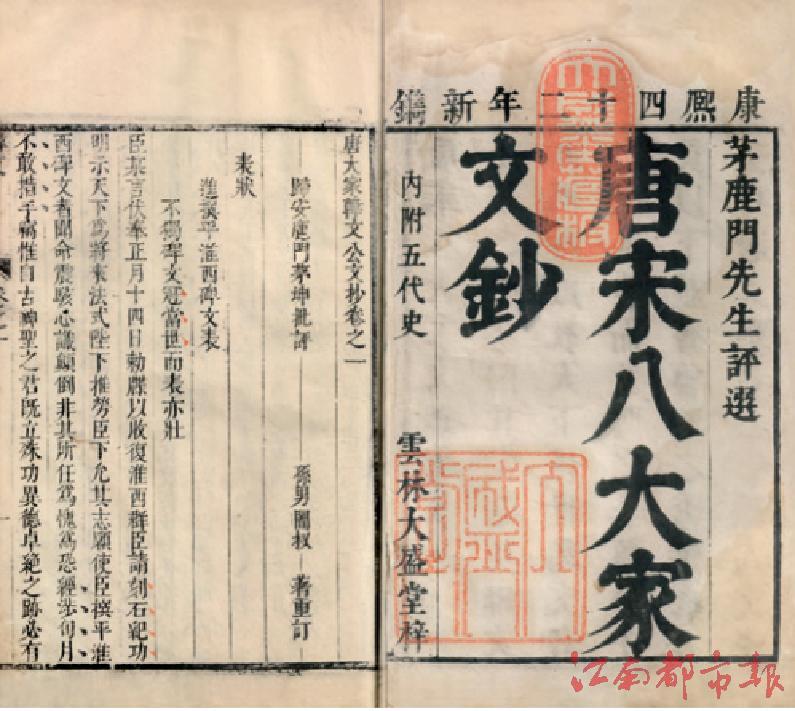 康熙四十二年新鐫
茅鹿門先生評選
唐宋八大家
文鈔
內附五代史
雲林大盛堂梓
唐大家韓文公文抄卷之一
歸安鹿門茅坤批評
孫男 叔 著重訂
表狀
進撰平淮西碑文表
不獨碑文冠當世而表亦壯
臣某言伏奉正月十四日勅牒以收復淮西群臣請刻石紀功
明示天下爲將來法式陛下推勞臣下允其志願使臣撰平淮
西碑文者聞命震駭心識顛倒非其所任爲愧爲恐經涉旬月
不敢措手竊惟自古神聖之君既立殊功異德卓絕之跡必有
江南都市報